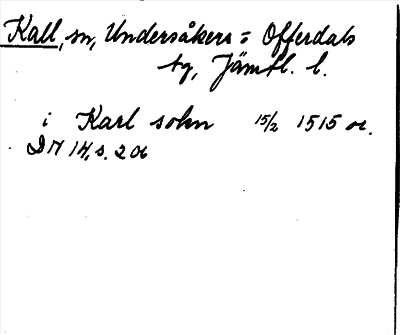 Kall, sn, Undersåkers = Offerdals
tg, Jämtl. l.
i Karl sokn 15/2 1515 or.
DN 14, s. 206